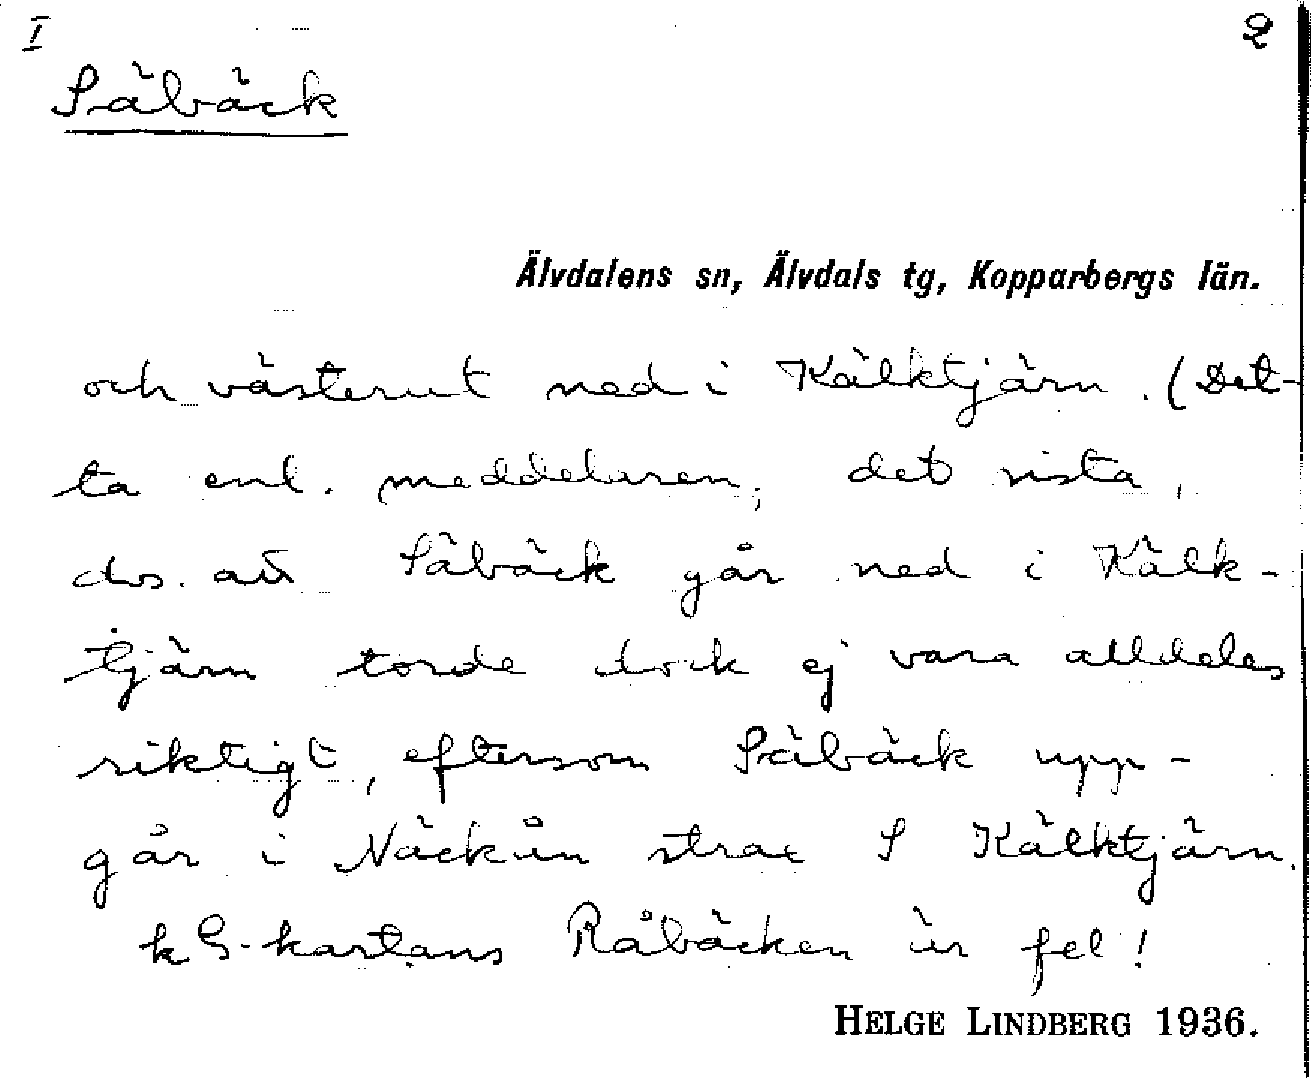 I 2
Säbäck
Älvdalens sn, Älvdals tg, Kopparbergs län.
och västerut ned i Kälktjärn. (Det-
ta enl. meddelaren; det sista,
dvs. att Säbäck går ned i Kälk-
tjärn torde dock ej vara alldeles
riktigt, eftersom Säbäck upp-
går i Näckån strax S Kälktjärn.
kG-kartans Råbäcken är fel!
HELGE LINDBERG 1936.